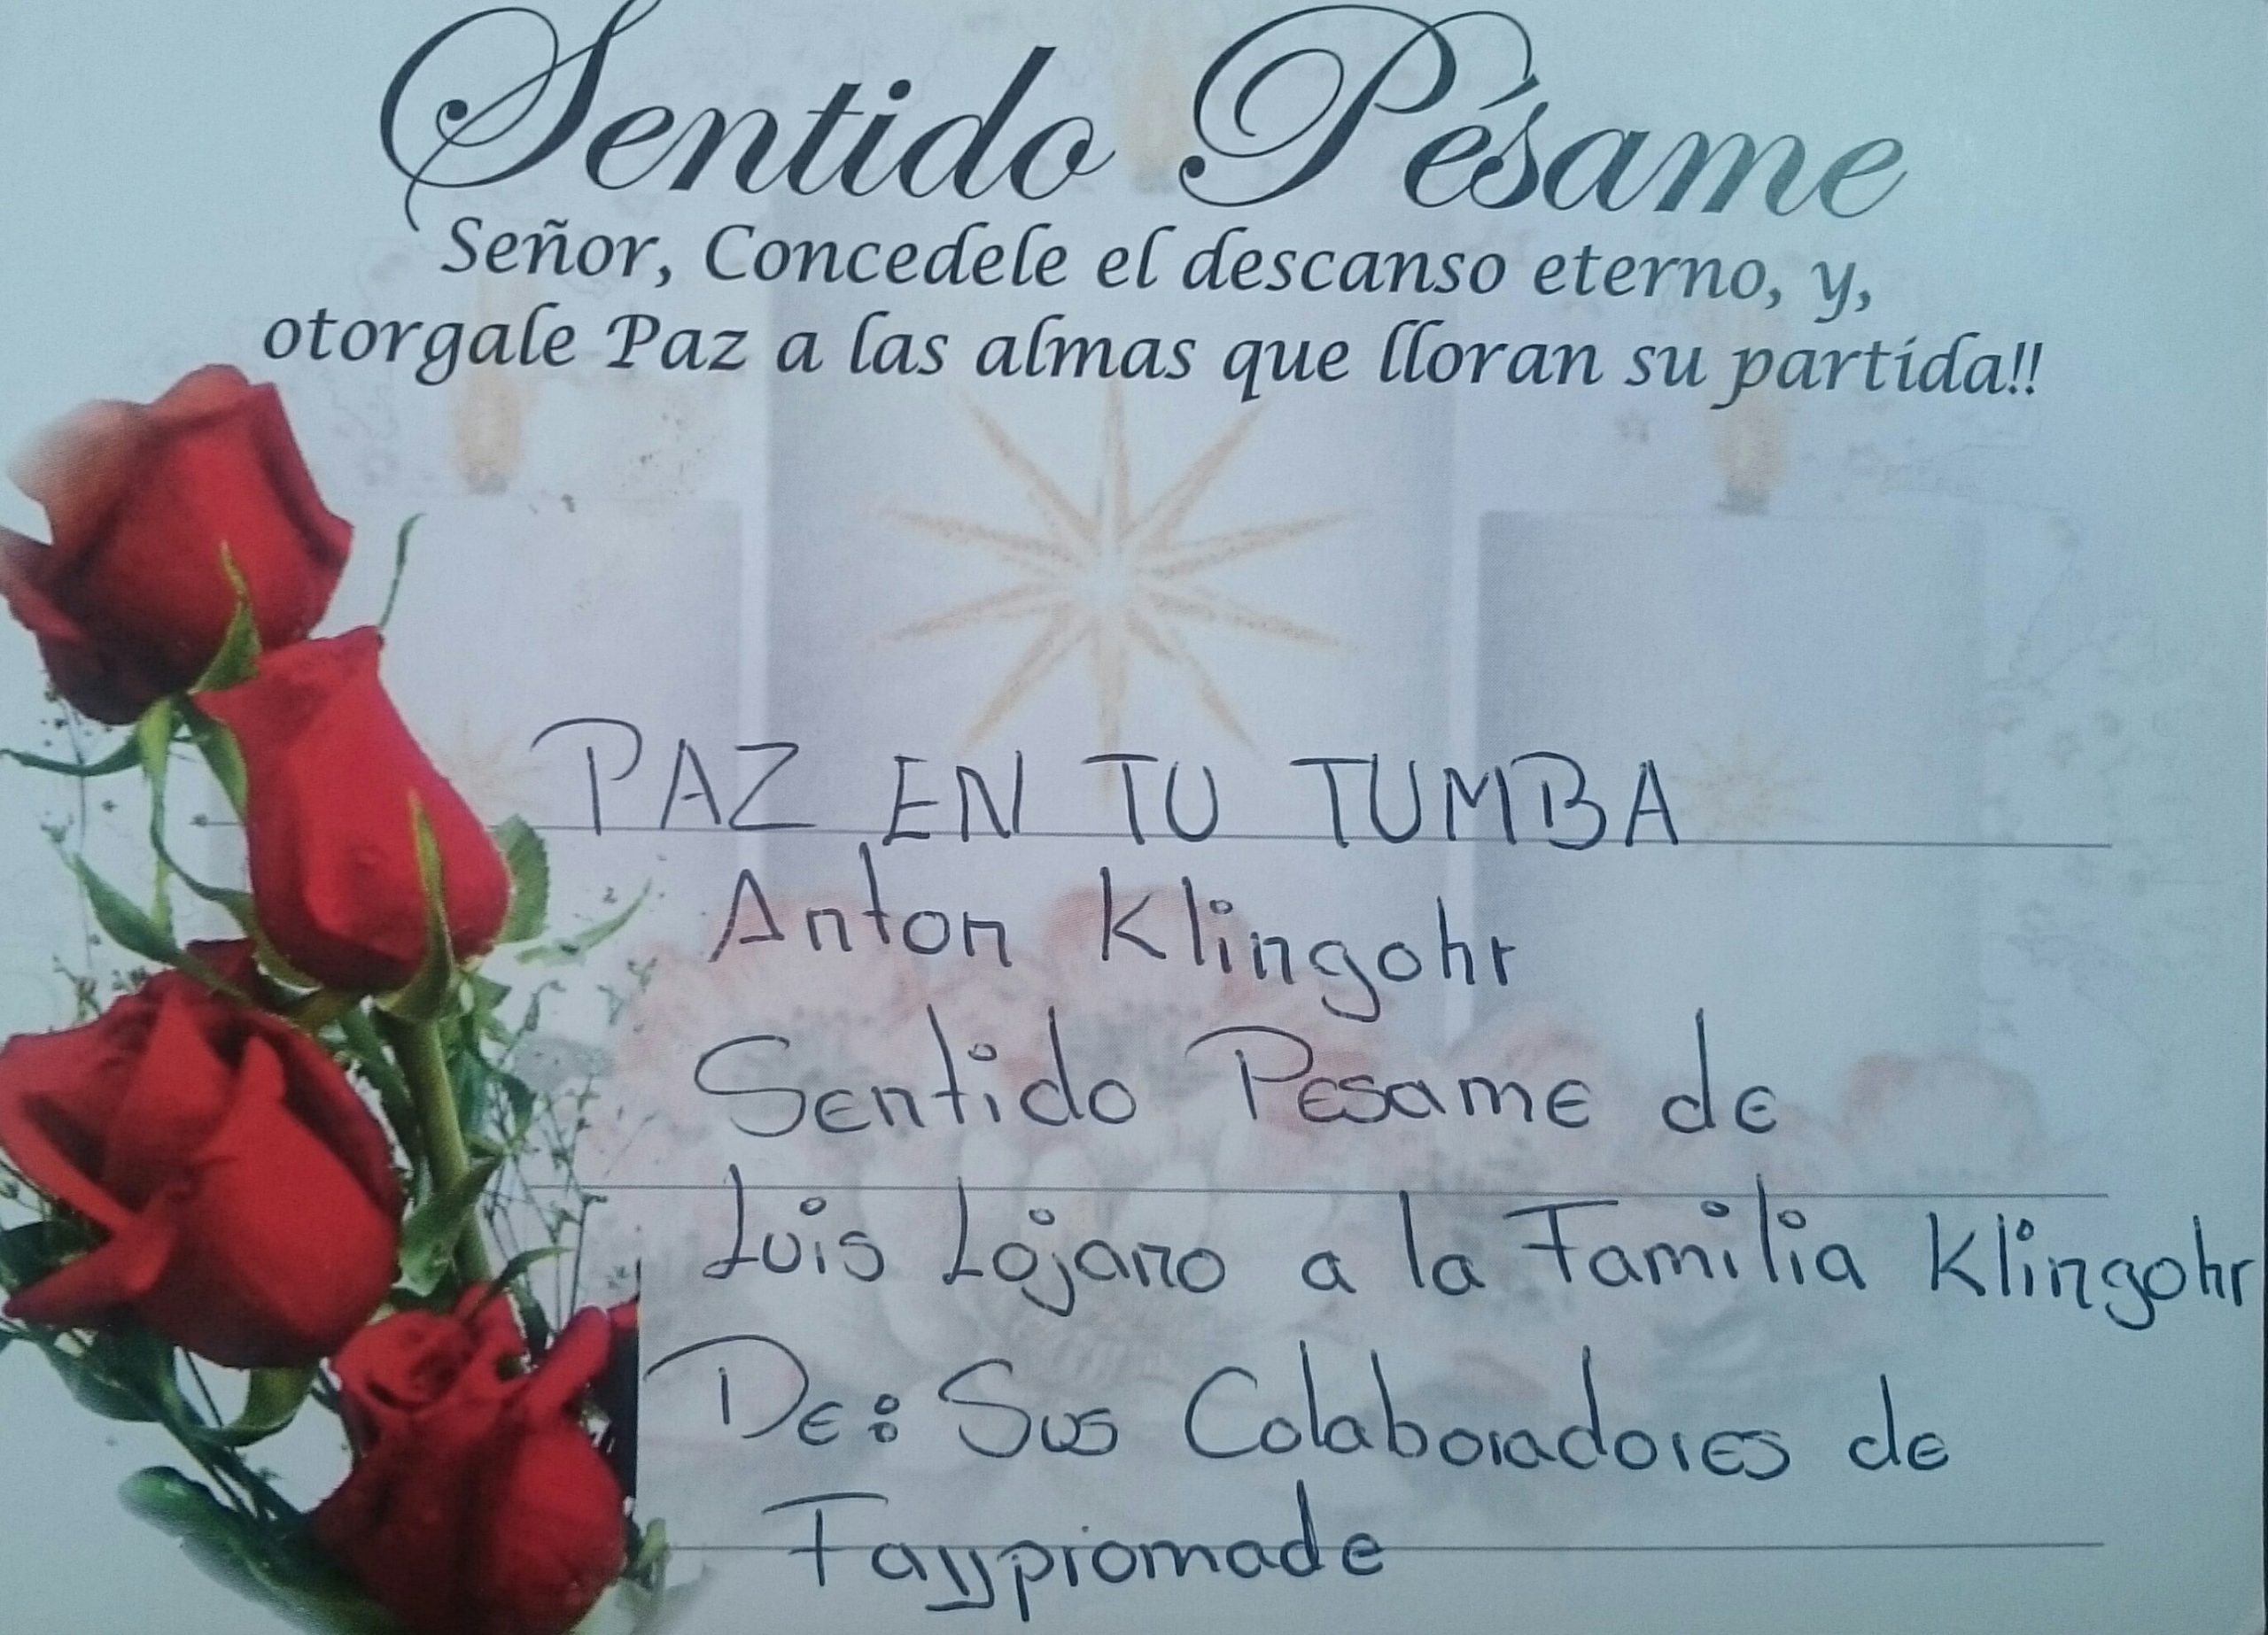 Sentido Pésame
Señor, Concedele el descanso eterno, y,
otorgale Paz a las almas que lloran su partida!!
PAZ EN TU TUMBA
Anton Klingohr
Sentido Pesame de
Luis Lojano a la Familia Klingohr
De: Sus Colaboradores de
Fayypromade